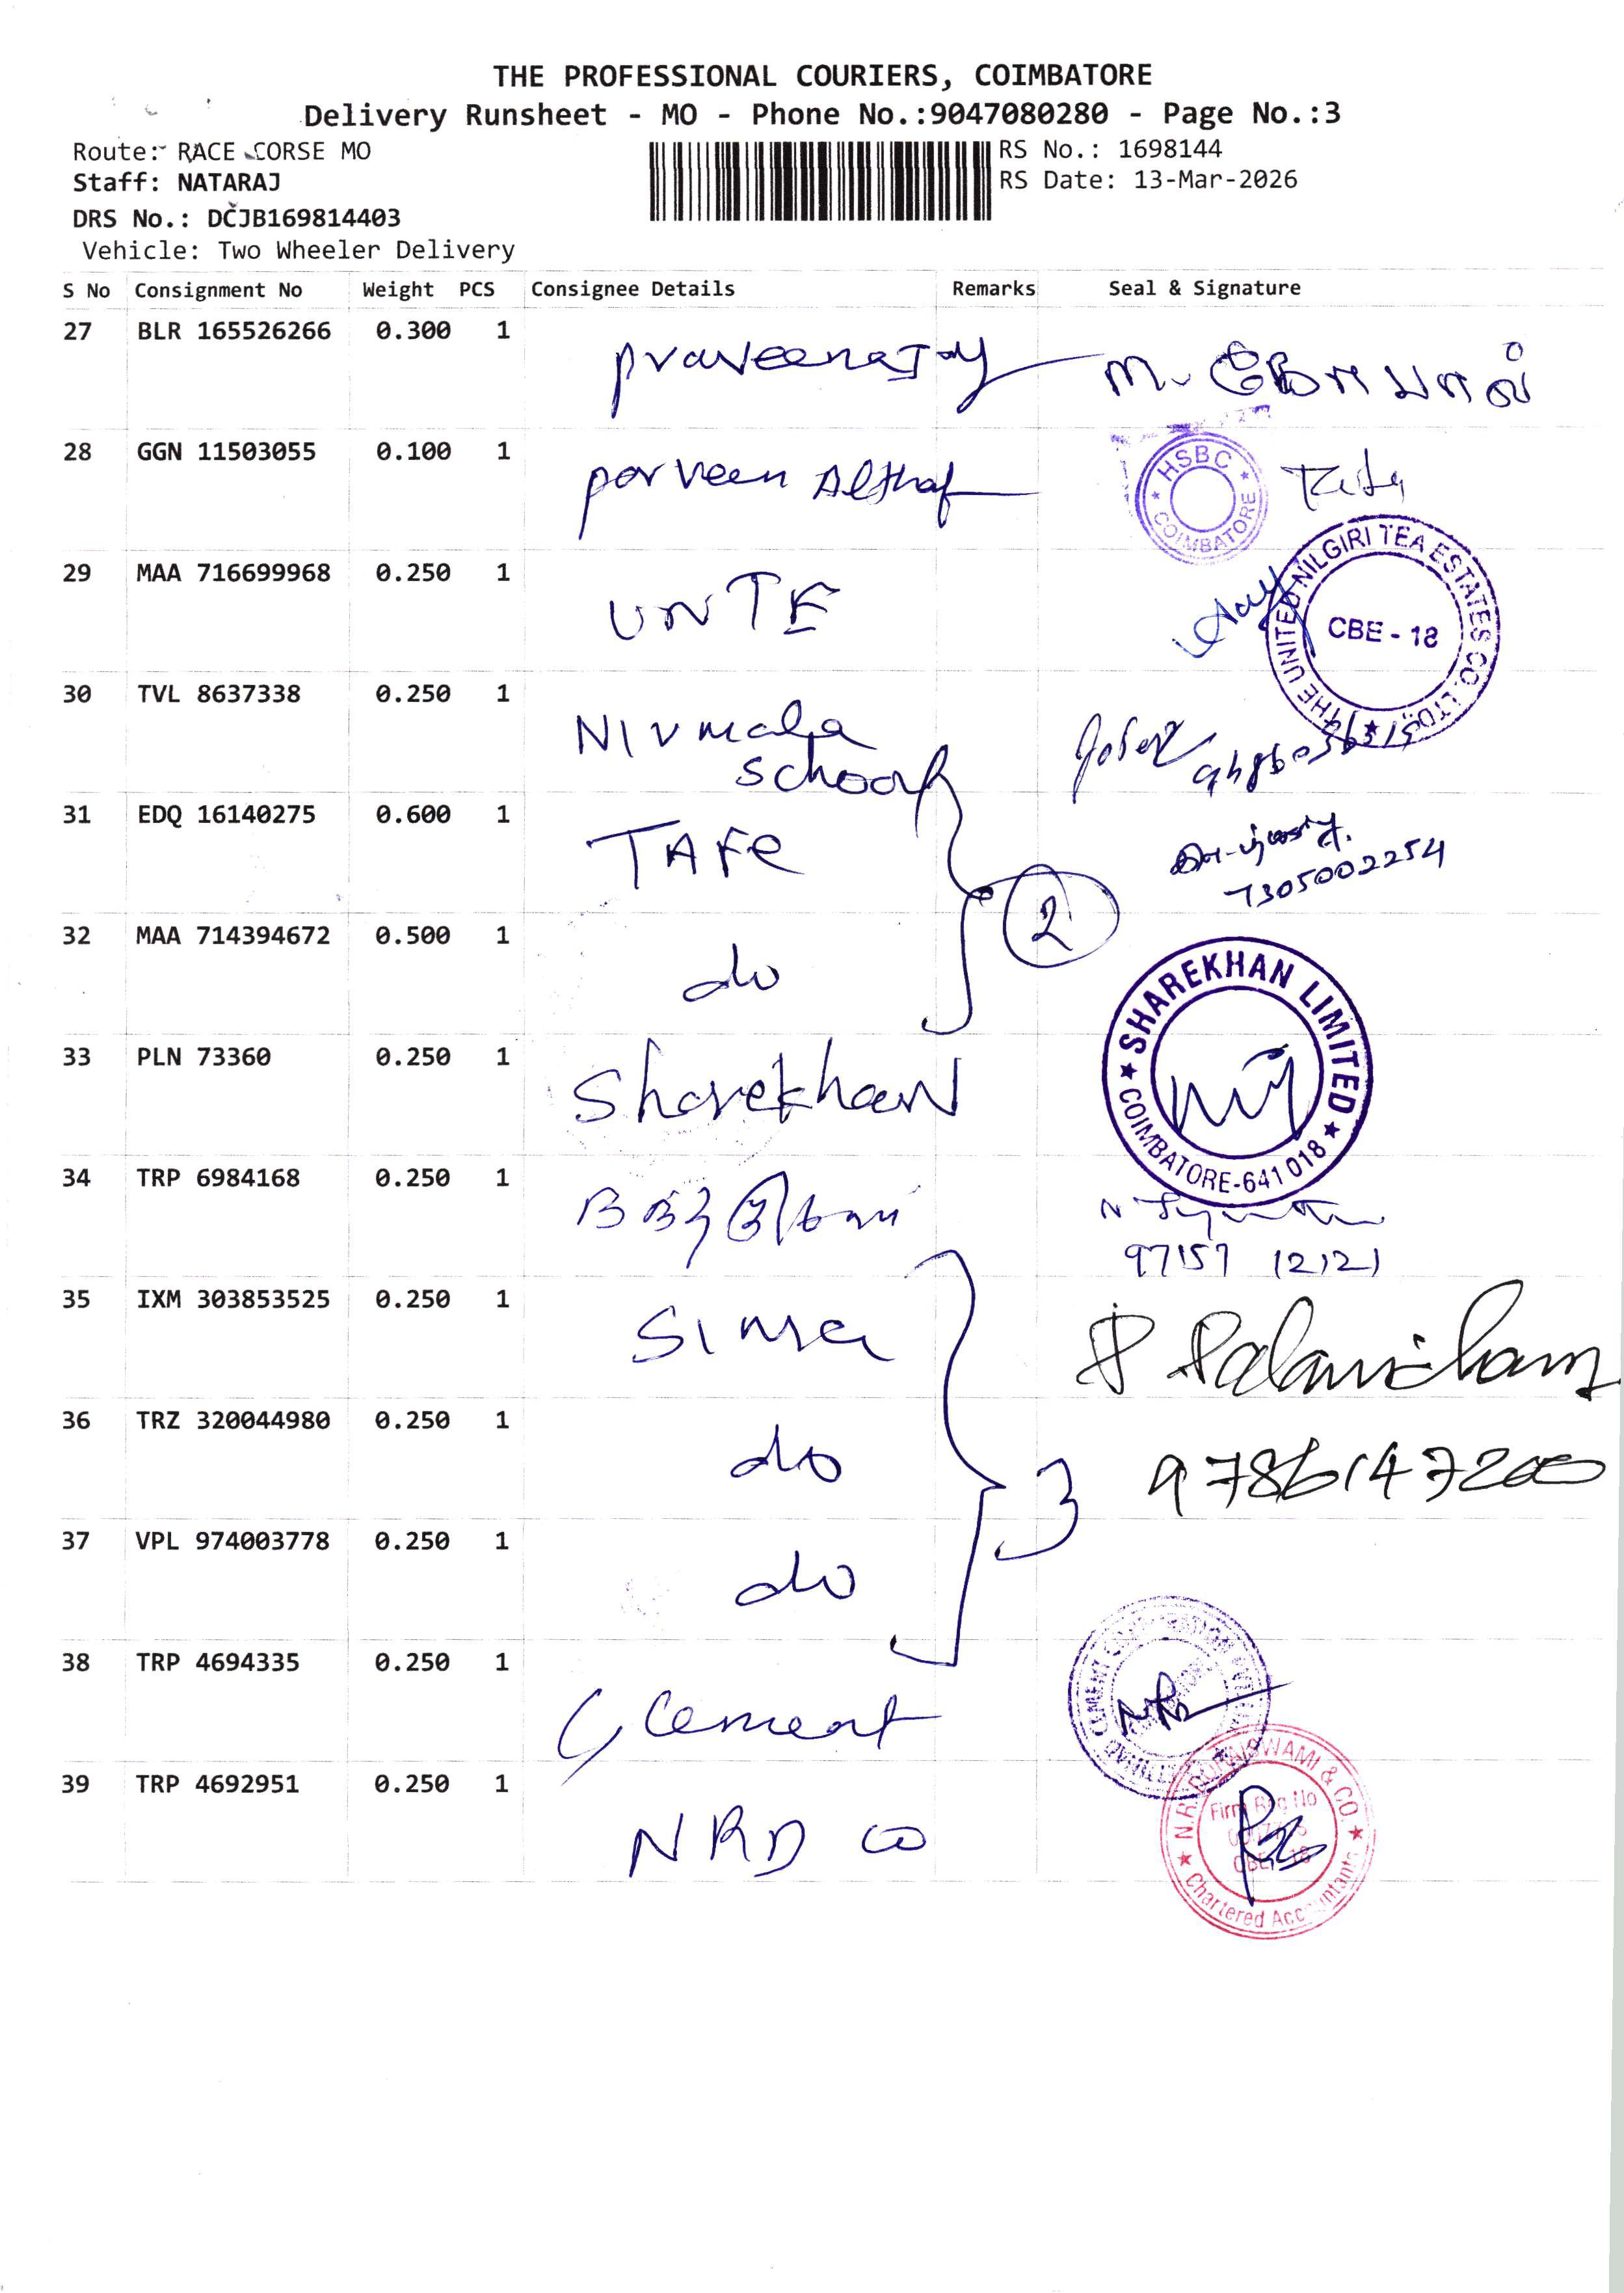 THE PROFESSIONAL COURIERS, COIMBATORE
Delivery Runsheet - MO - Phone No.:9047080280 - Page No.:3
Route: RACE CORSE MO
RS No.: 1698144
Staff: NATARAJ
RS Date: 13-Mar-2026
DRS No.: DCJB169814403
Vehicle: Two Wheeler Delivery
S No Consignment No Weight PCS Consignee Details Remarks Seal & Signature
27 BLR 165526266 0.300 1 M.
28 GGN 11503055 0.100 1 parveen Althaf
HSBC COIMBATORE
29 MAA 716699968 0.250 1 UNTE
THE UNITED NILGIRI TEA ESTATES CO. LTD.,
CBE - 18
30 TVL 8637338 0.250 1 Nirmala
School
31 EDQ 16140275 0.600 1 TAFe
7305002254
2
32 MAA 714394672 0.500 1 do
SHAREKHAN LIMITED
COIMBATORE-641 018
33 PLN 73360 0.250 1 Sharekhan
34 TRP 6984168 0.250 1
97157 12121
35 IXM 303853525 0.250 1 Sima
36 TRZ 320044980 0.250 1 do
9786147200
3
37 VPL 974003778 0.250 1 do
38 TRP 4694335 0.250 1 Cement
CEMENT
39 TRP 4692951 0.250 1 NRD co
N.R. DORAISWAMI & CO.
Firm Reg No
Chartered Accountants